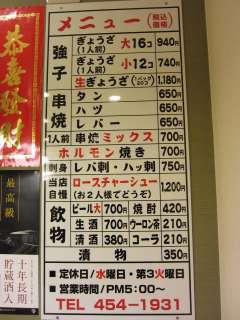 メニュー (税込価格)
強子
ぎょうざ(1人前) 大16コ 940円
ぎょうざ(1人前) 小12コ 740円
生ぎょうざ(パック20コ) 1,180円
串焼
タン 650円
ハツ 650円
レバー 650円
1人前 串焼ミックス 700円
ホルモン焼き 700円
刺身 レバ刺・ハッ刺 750円
当店自慢 ロースチャーシュー(お2人様でどうぞ) 1,200円
飲物
ビール大 700円 焼酎 420円
生酒 700円 ウーロン茶 210円
清酒 380円 コーラ 210円
漬物 350円
■定休日/水曜日・第3火曜日
■営業時間/PM5:00〜
TEL 454-1931
恭喜發財
最高級
十年長期
貯蔵酒入